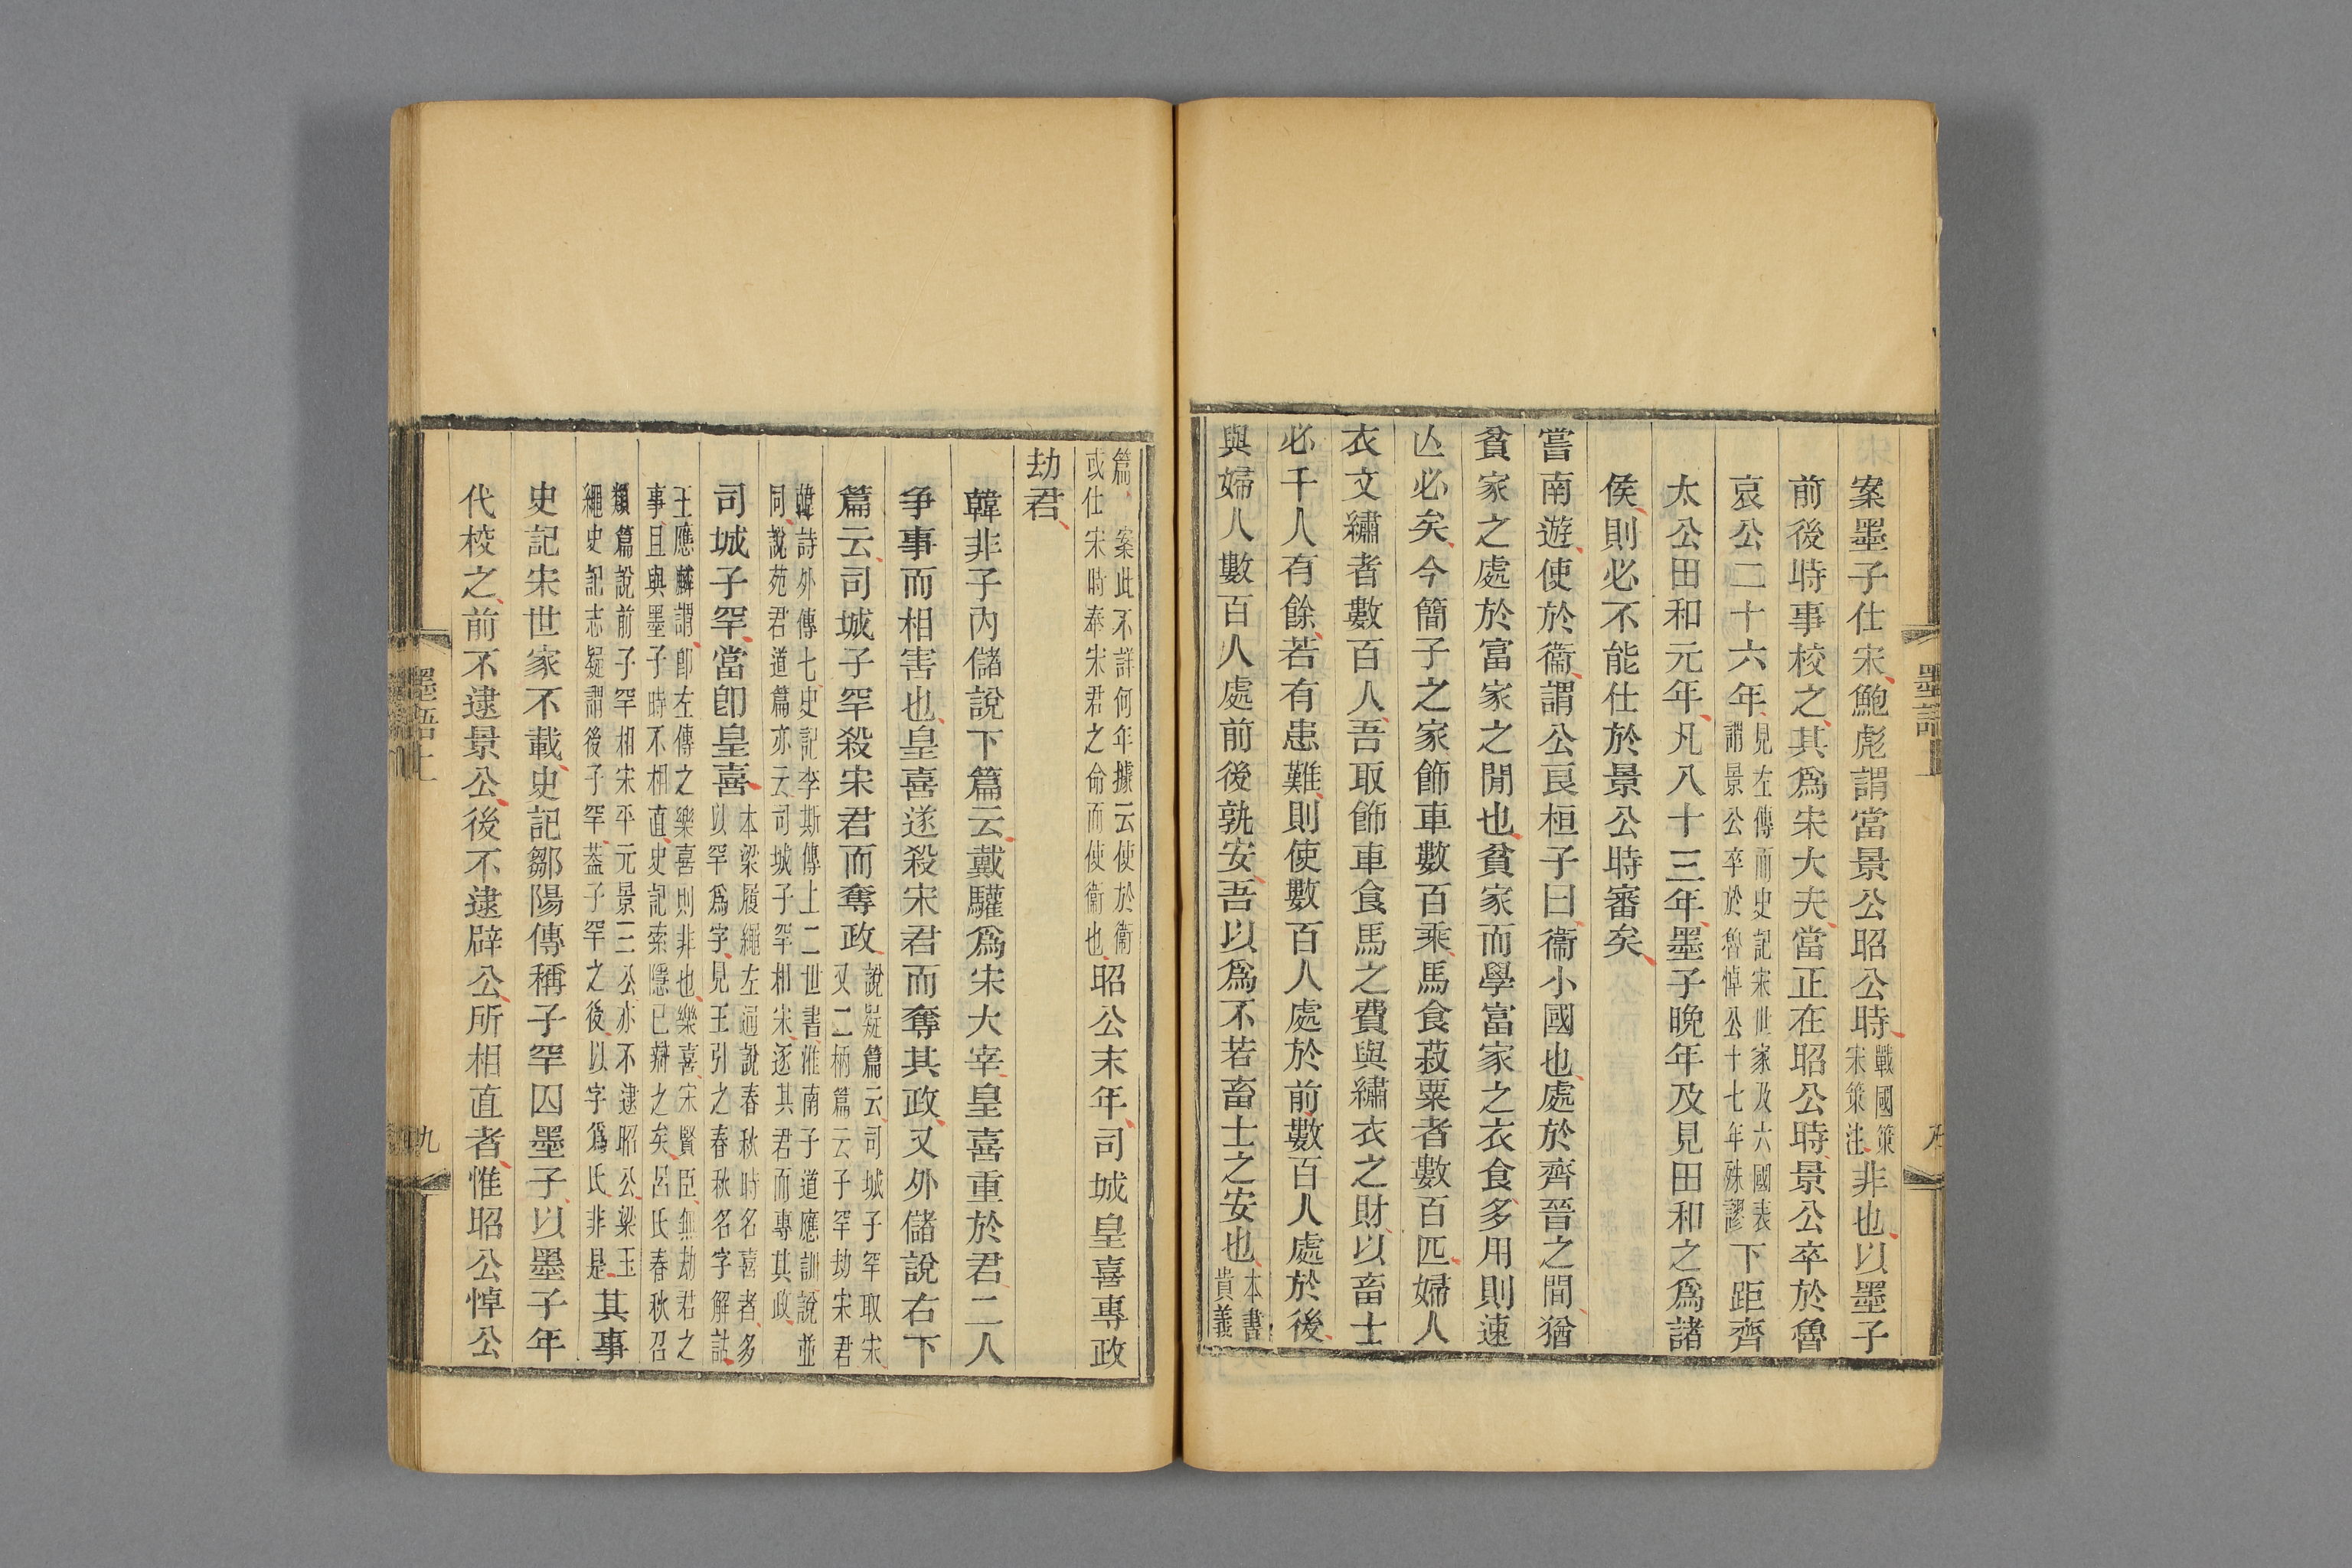 案墨子仕宋鮑彪謂當景公昭公時戰國策宋策注非也以墨子
前後時事校之其爲宋大夫當正在昭公時景公卒於魯
哀公二十六年見左傳而史記宋世家及六國表謂景公卒於魯悼公十七年殊謬下距齊
太公田和元年凡八十三年墨子晚年及見田和之爲諸
侯則必不能仕於景公時審矣
嘗南遊使於衞謂公良桓子曰衞小國也處於齊晉之間猶
貧家之處於富家之閒也貧家而學富家之衣食多用則速
亾必矣今簡子之家飾車數百乘馬食菽粟者數百匹婦人
衣文繡者數百人吾取飾車食馬之費與繡衣之財以畜士
必千人有餘若有患難則使數百人處於前數百人處於後
與婦人數百人處前後孰安吾以爲不若畜士之安也本書貴義
篇案此不詳何年據云使於衞或仕宋時奉宋君之命而使衞也昭公末年司城皇喜專政
劫君
韓非子內儲說下篇云戴驩爲宋大宰皇喜重於君二人
爭事而相害也皇喜遂殺宋君而奪其政又外儲說右下
篇云司城子罕殺宋君而奪政說疑篇云司城子罕取宋又二柄篇云子罕劫宋君
韓詩外傳七史記李斯傳上二世書淮南子道應訓說並同說苑君道篇亦云司城子罕相宋逐其君而專其政
司城子罕當卽皇喜本梁履繩左通說春秋時名喜者多以罕爲字見王引之春秋名字解詁
王應麟謂卽左傳之樂喜則非也樂喜宋賢臣無劫君之事且與墨子時不相直史記索隱已辯之矣呂氏春秋召
類篇說前子罕相宋平元景三公亦不逮昭公梁玉繩史記志疑謂後子罕葢子罕之後以字爲氏非是其事
史記宋世家不載史記鄒陽傳稱子罕囚墨子以墨子年
代校之前不逮景公後不逮辟公所相直者惟昭公悼公
墨語上
九